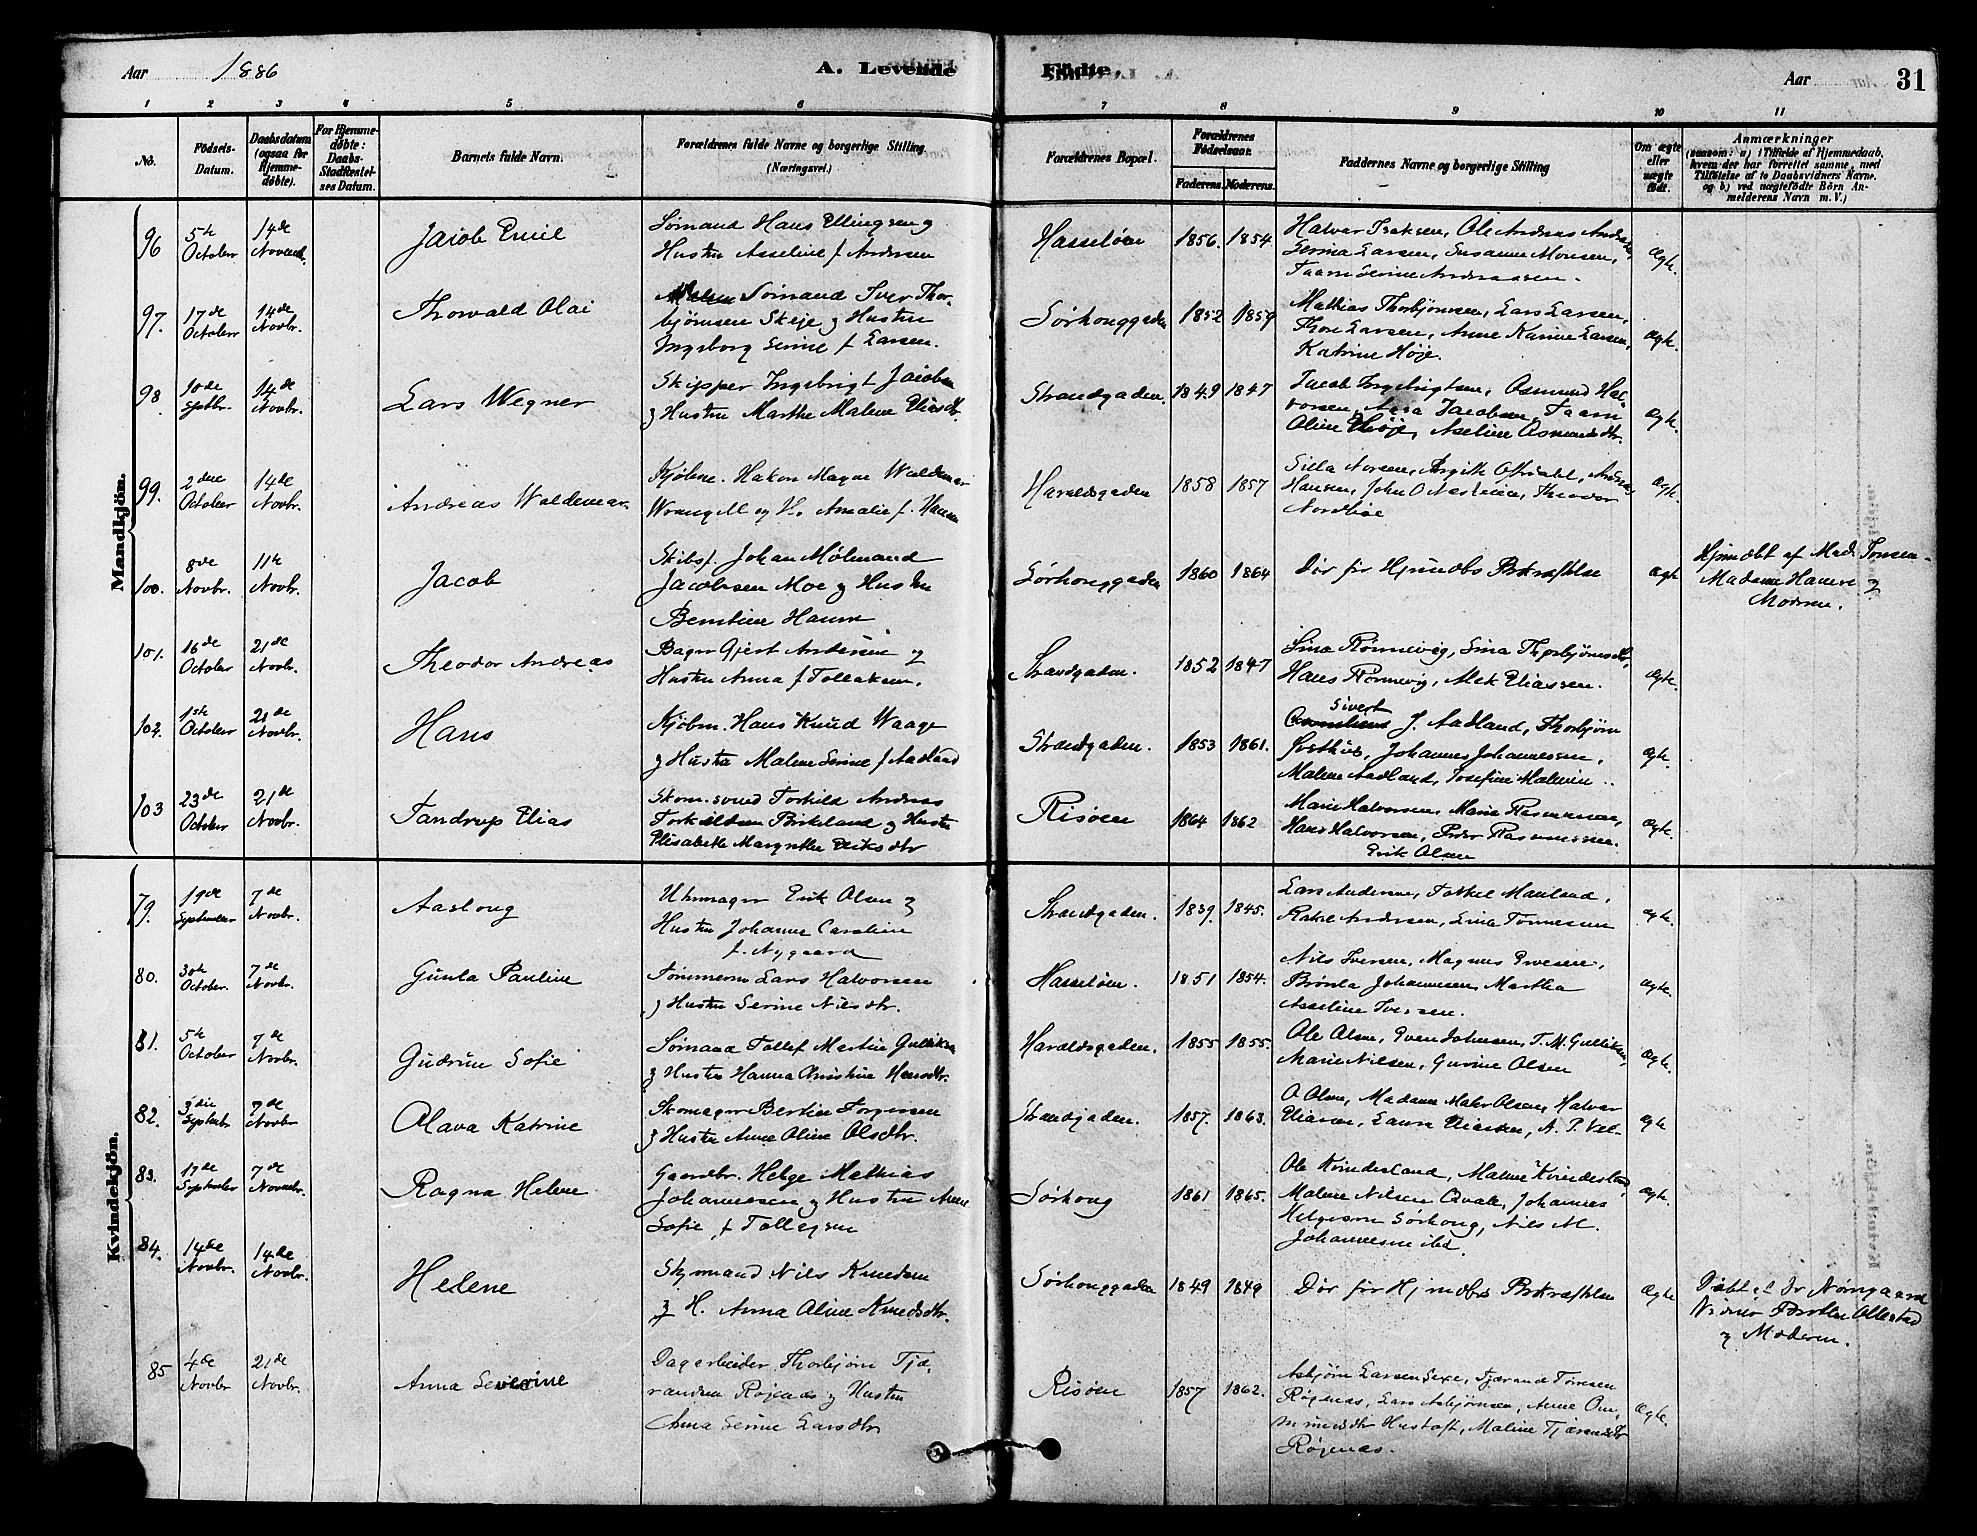 Aar 1886 A. Levende Födte. Aar 31
1 2 3 4 5 6 7 8 9 10 11
No.
Födsels-
Datum.
Daabsdatum
(ogsaa for
Hjemme-
döbte).
For Hjemme-
döbte:
Daabs-
Stadfæstel-
ses Datum.
Barnets fulde Navn.
Forældrenes fulde Navne og borgerlige Stilling.
(Næringsvei.)
Forældrenes Bopæl.
Forældrenes
Födselsaar.
Faderens. Moderens.
Faddernes Navne og borgerlige Stilling
Om ægte
eller
uægte
födt.
Anmærkninger
(saasom: a) i Tilfælde af Hjemmedaab,
hvem der har forrettet samme, med
Tilföielse af to Daabsvidners Navne.
og b) ved uægtefödte Börn An-
melderens Navn m. V.)
Mandkjön.
96 5te October 14de Novemb. Jacob Emil
Sömand Hans Ellingsen og
Hustru Asseline f Andersen
Hasselöen 1856. 1854
Halvor Isaksen, Ole Andreas
Serina Larsen, Susanne Monsen,
Taam Serine Andreassen.
Ægte.
97. 17de October 14de Novbr. Thorvald Olai
Sömand Iver Thor-
björnsen Skeje og Hustru
Ingeborg Serine f Larsen.
Sörhouggaden 1852 1859
Mathias Thorbjörnsen, Lars Larsen,
Thore Larsen, Anne Karine Larsen,
Katrine Höje.
Ægte.
98. 10de Septbr. 14de Novbr. Lars Wegner
Skipper Ingebrigt Jacobsen
og Hustru Marthe Malene Eliasdtr.
Strandgaden. 1849 1847
Jacob Ingebrigtsen, Osmund Hal-
vorsen, Jacobsen, Taam
Oline Höje, Aseline Osmundsdtr.
Ægte.
99. 2den October 14de Novbr. Andreas Waldemar
Kjöbm. Hakon Magne Waldemar
Wrangell og H. Amalie f. Hansen
Haraldsgaden 1858 1857
Hansen, John Theodor
Nordboe
Ægte.
100. 8de Novbr. 11te Novbr. Jacob
Skibsf. Johan Mölmand
Jacobsen Moe og Hustru
Bentine
Sörhouggaden 1860 1864
Dör för Hjmdbs Bekræftelse
Ægte
Hjmdöbt af Mad. Tonsen
Madame og
Moderen.
101. 16de October 21de Novbr. Theodor Andreas
Bager Gjert Andersen og
Hustru Anna f Tollaksen.
Strandgaden. 1852 1847
Sina Rönnevig, Sina Thorbjörnsdtr,
Hans Rönnevig, Eliassen.
Ægte.
102. 1ste October 21de Novbr. Hans
Kjöbm. Hans Knud Waage
og Hustru Malene Serine f Aadland
Strandgaden. 1853 1861.
Sivert
J. Aadland, Thorbjörn
Johannes Johannessen,
Malene Aadland, Josefine
Ægte.
103 23de October 21de Novbr. Tandrup Elias
Skom.svend Torkild Andreas
Torkildsen Birkeland og Hustru
Elisabeth Eriksdtr
Risöen 1864 1862
Marie Halvorsen, Marie Rasmussen,
Hans Halvorsen, Peder Rasmussen.
Erik Olsen
Ægte.
Kvindekjön.
79. 19de September 7de Novbr. Aasloug
Uhrmager Erik Olsen og
Hustru Johanne Caroline
f. Nygaard
Strandgaden. 1839. 1845.
Lars Andersen, Torkel Mauland,
Rakel Andersen, Lina Tonnesen
Ægte.
80. 30te October. 7de Novbr. Gunla Pauline
Tömmerm Lars Halvorsen
og Hustru Serine Nilsdtr.
Hasselöen. 1851 1854.
Nils Iversen, Magnus
Brönla Johannesen, Martha
Asseline Iversen.
Ægte.
81. 5te October 7de Novbr. Gudrun Sofie
Sömand Tollef Martin Gulliksen
og Hustru Hanna Christine Hansdtr.
Haraldsgaden. 1855 1855.
Ole Olsen, Johnsen, T. M. Gulliksen,
Marie Nilsen, Gurine Olsen
Ægte.
82. 3die Septembr 7de Novbr Olava Katrine
Skomager Bertin Torgersen
og Hustru Anne Oline Olsdtr.
Strandgaden. 1857. 1863.
O Olsen, Madame Olsen, Halvor
Eliasen, Laura Eliassen, A. P.
Ægte
83. 17de September 7de Novemb. Ragna Helene
Gaardbr. Helge Mathias
Johannesen og Hustru Anne
Sofie f Tollefsen
Sörhoug 1861 1865.
Ole Kvindesland, Malene Kvindesland,
Malene Nilsen Qvale, Johannes
Helgesen Sörhoug, Nils M.
Johannesen ibd.
Ægte.
84. 14de Novbr. 14de Novbr. Helene
Nils Knudsen
og H. Anna Oline Knudsdtr.
Sörhouggaden 1849 1849
Dör för Hjmdbs Bekræftelse
Ægte
Döbt af Dr Nörregaard
og Moderen.
85 4de Novbr 21de Novbr. Anna Severine
Dagarbeider Thorbjörn Tjæ-
randsen Röjenæs og Hustru
Anna Serine Larsdtr
Risöen 1857 1862.
Asbjörn Larsen Sexe, Tjærand Tönnesen
Röjenæs, Lars Asbjörnsen, Anne Om-
mundsdtr Hustoft, Malene Tjærandsdtr
Röjenæs.
Ægte.